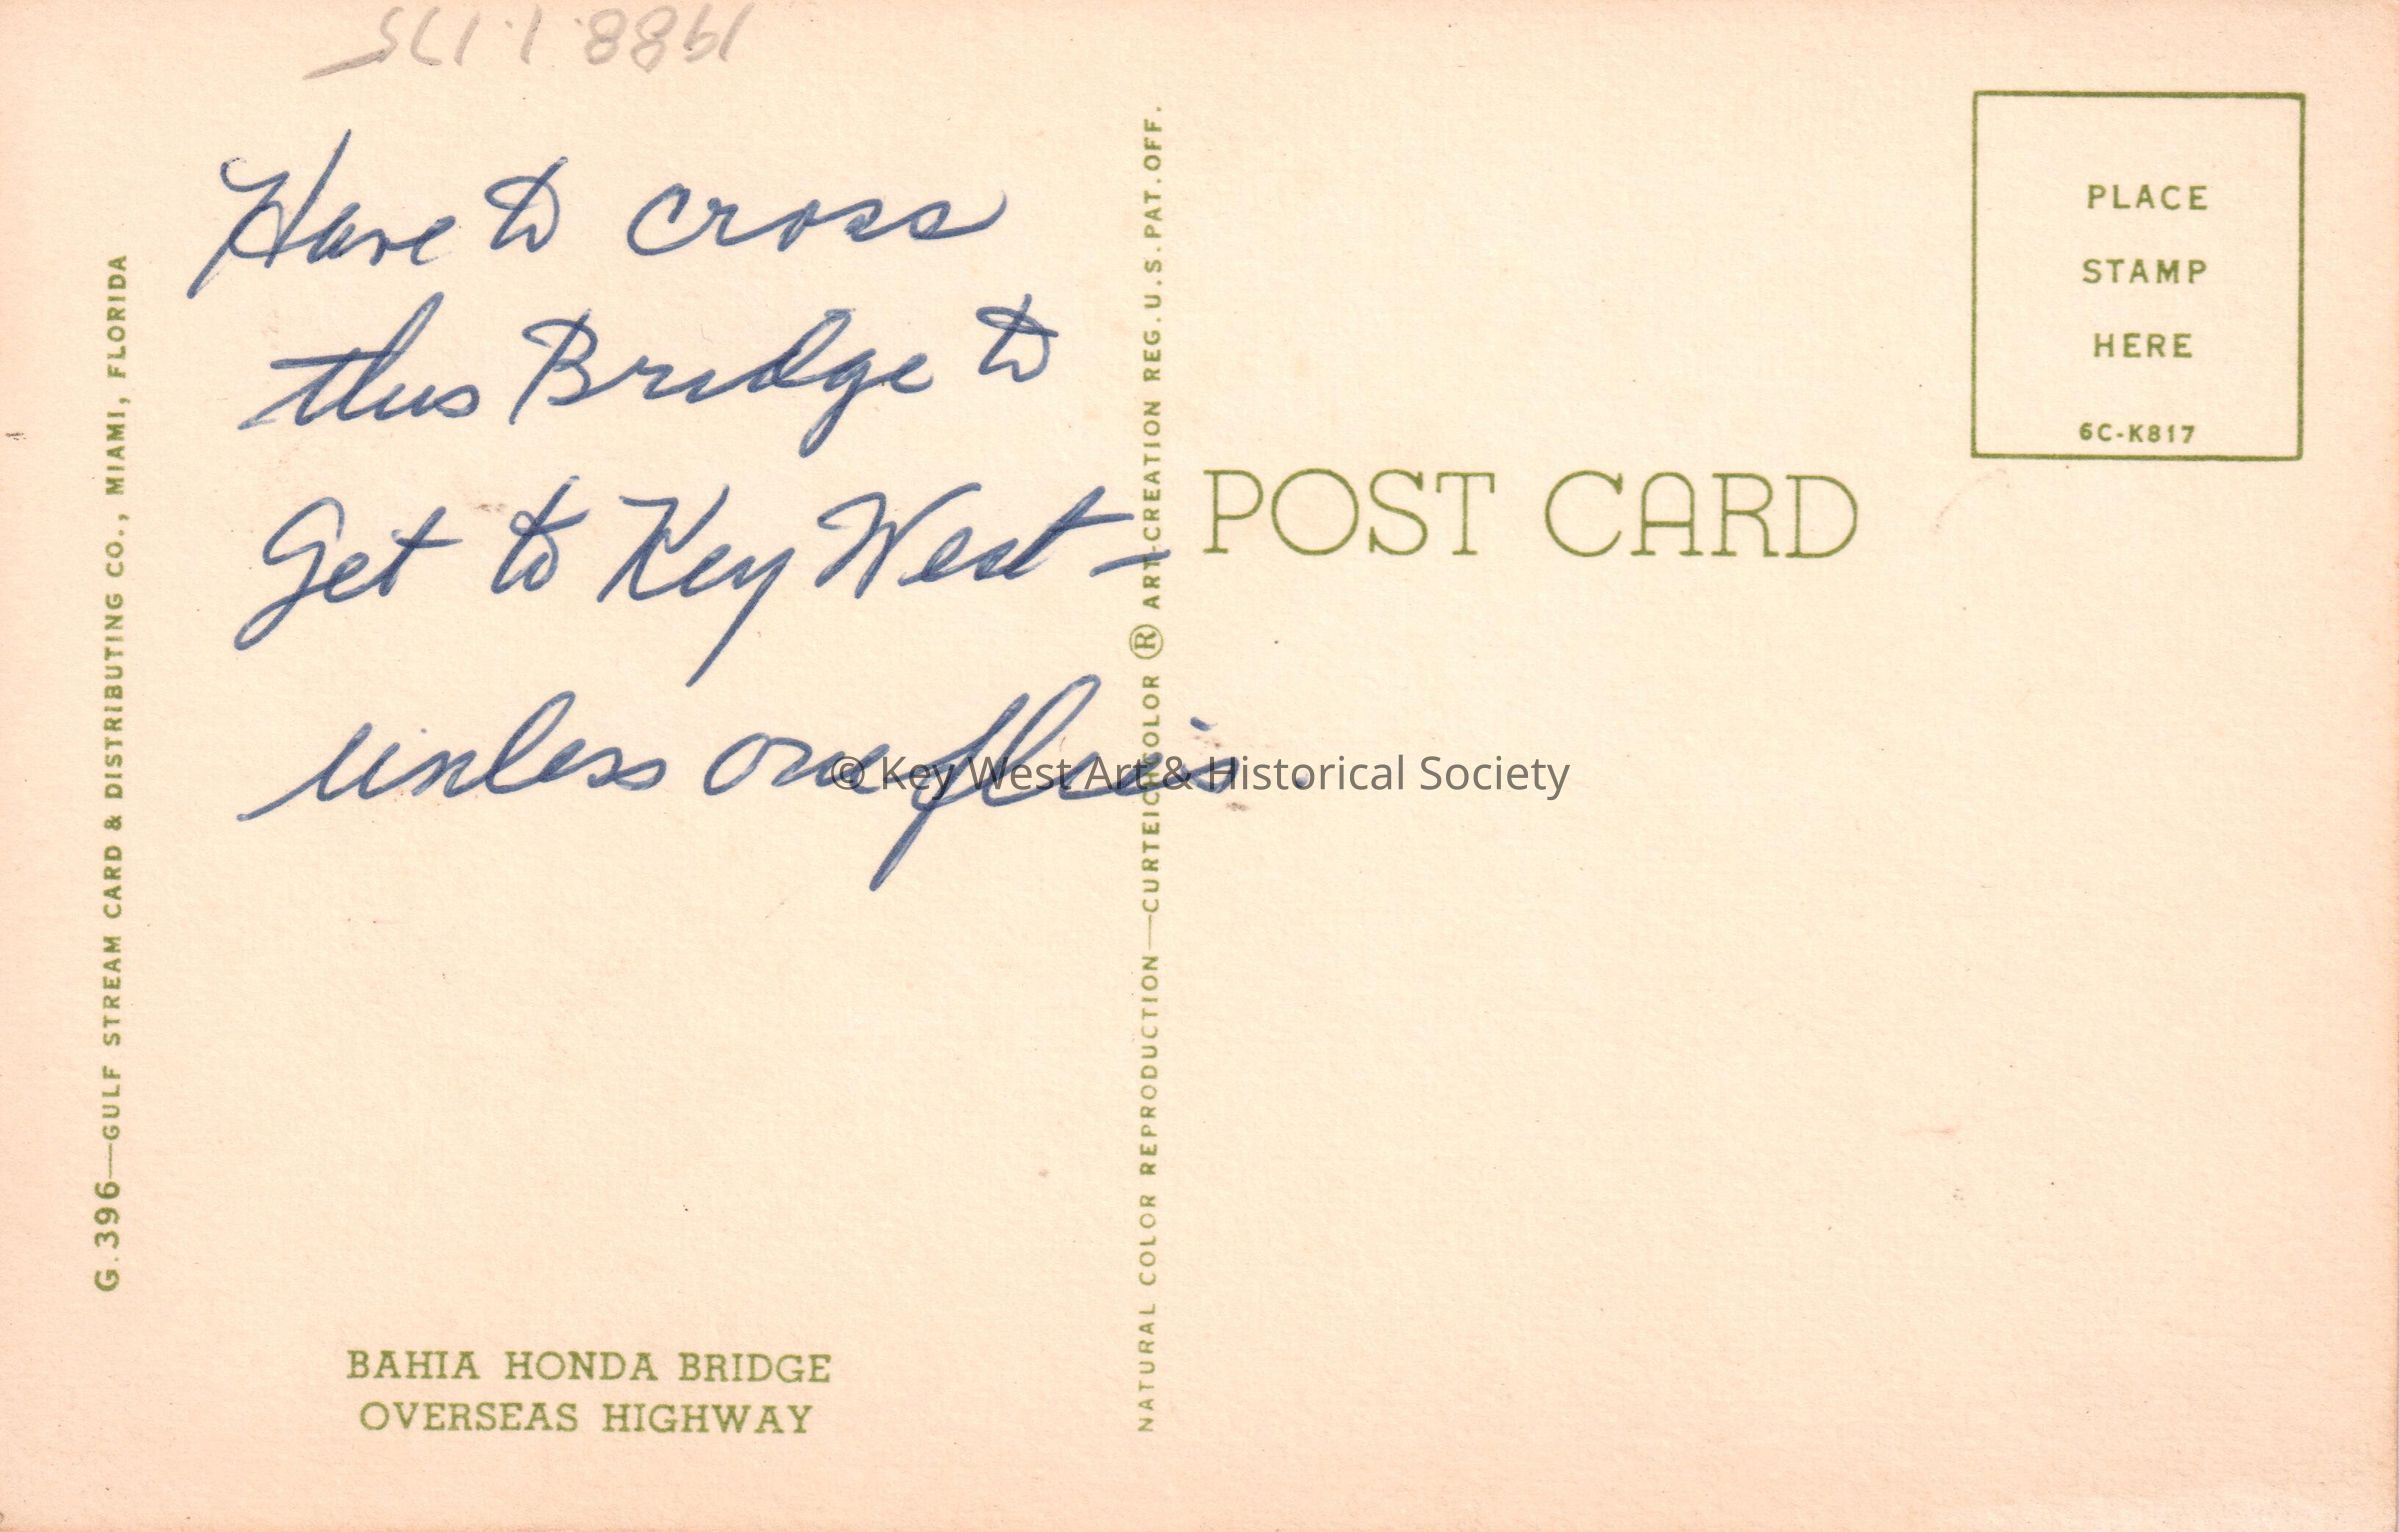 1988.1.175
Have to cross
this Bridge to
Get to Key West –
unless one flies.
G.396—GULF STREAM CARD & DISTRIBUTING CO., MIAMI, FLORIDA
BAHIA HONDA BRIDGE
OVERSEAS HIGHWAY
NATURAL COLOR REPRODUCTION—CURTEICHCOLOR ® ART-CREATION REG. U.S. PAT. OFF.
POST CARD
PLACE
STAMP
HERE
6C-K817
© Key West Art & Historical Society